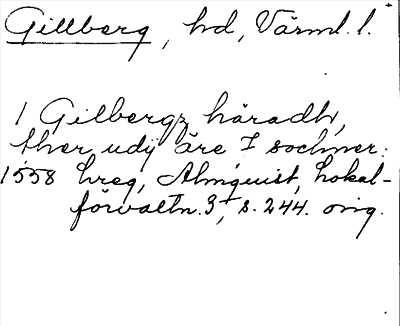 Gillberg, hd, Värml. l.
I Gilbergz häradh,
ther udÿ äre 7 sochner:
1558 hreg, Almquist, Lokal-
förvaltn. 3, s. 244. orig.